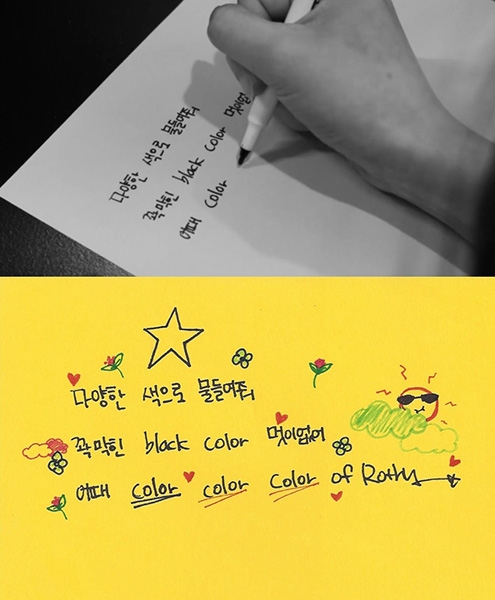 다양한 색으로 물들여줘
꽉막힌 black color 멋이없
어때 color
다양한 색으로 물들여줘
꽉막힌 black color 멋이없어
어때 color color color of Rothy